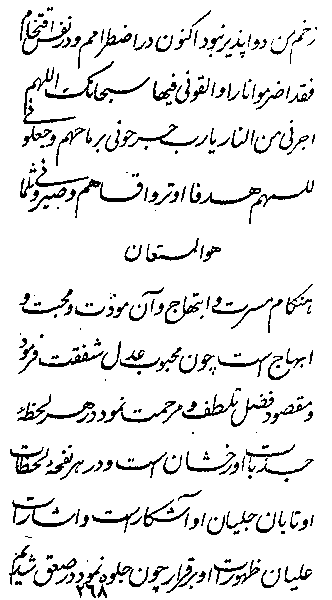 زخم من دواپذیر نبود اکنون در اضطرامم و در نفس اقتحام
فقد اضرموا نارا و القونی فیها سبحانک اللهم
اجرنی من النار یا رب جرحونی برماحهم و جعلونی
للسهم هدفا اوترو اقواسهم و صیرونی شلما
هو المستعان
هنگام مسرت و ابتهاج و آن مودت و محبت و
ابهاج است چون محبوب عدل شفقت فرمود
و مقصود فضل تلطف و مرحمت نمود در هر لحظهٔ
جذبات او رخشان است و در هر نفحهٔ لحظات
او تابان جلیان او آشکار است و اشارات
علیان ظهورات او برقرار چون جلوه نمود در صعق شدیم
۲۶۸